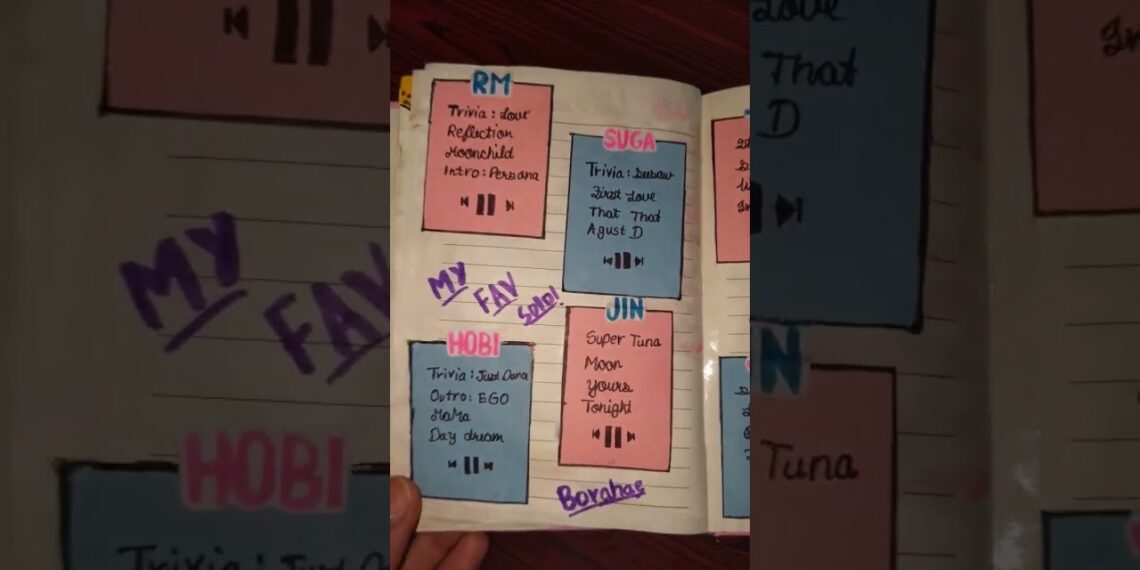 RM
Trivia : Love
Reflection
Moonchild
Intro : Persona
SUGA
Trivia : Seesaw
First Love
That That
Agust D
MY
FAV
Solo!
HOBI
Trivia : Just Dance
Outro : EGO
MaMa
Day dream
JIN
Super Tuna
Moon
Yours
Tonight
Borahae